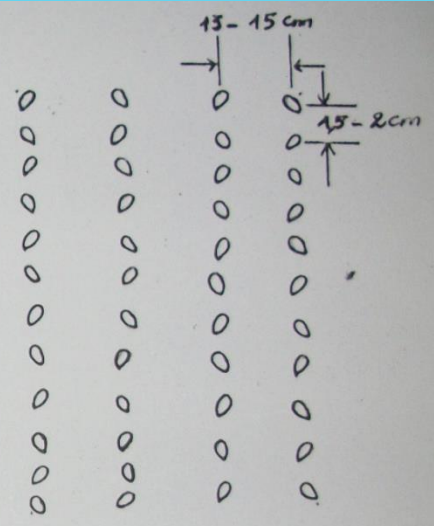 13 - 15 cm
1,5 - 2 cm